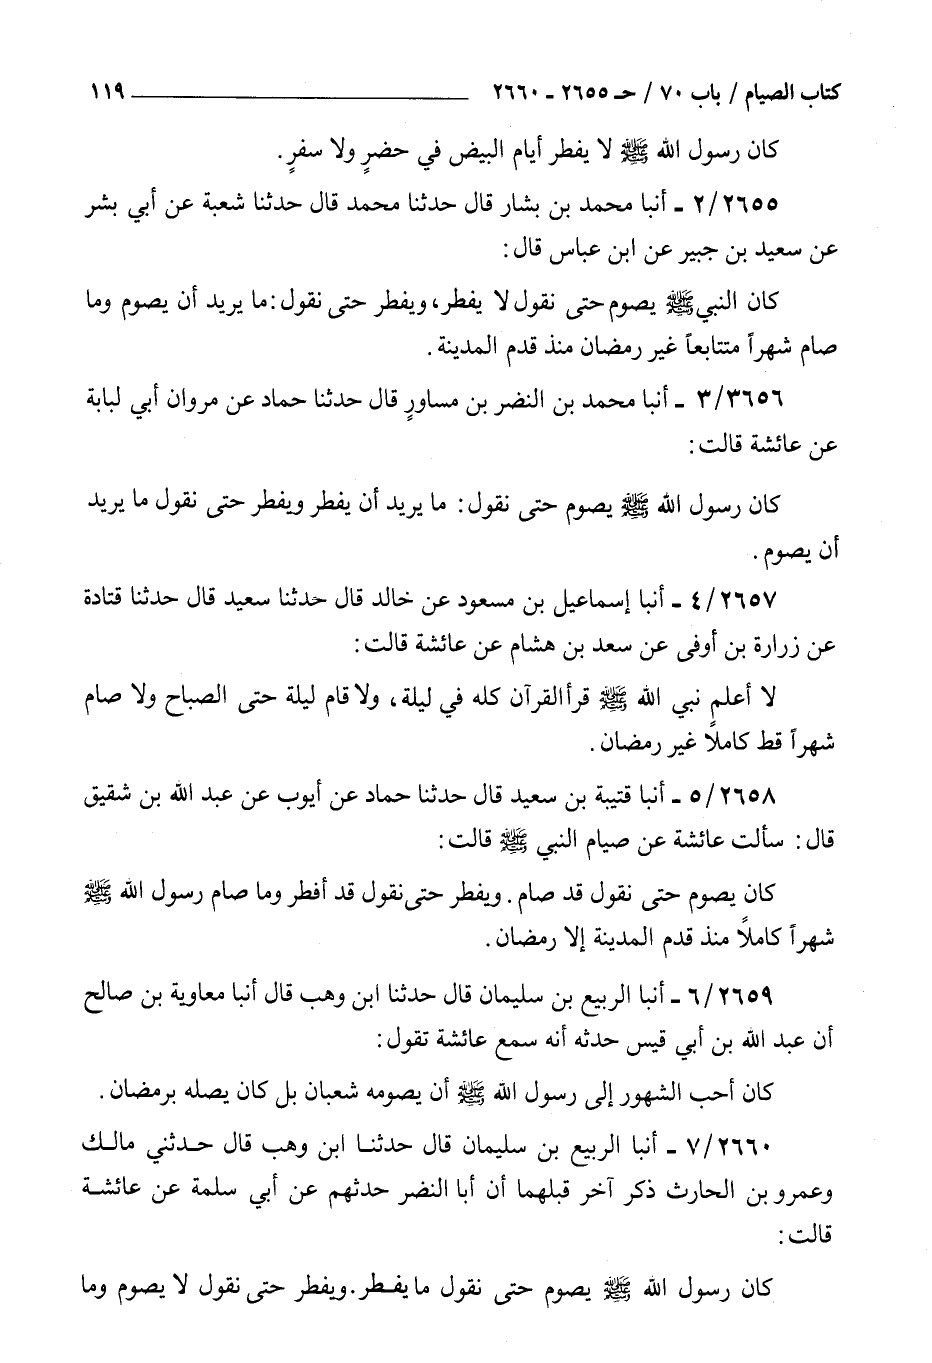 كتاب الصيام / باب ٧٠ / حـ ٢٦٥٥ - ٢٦٦٠ ١١٩
كان رسول الله ﷺ لا يفطر أيام البيض في حضرٍ ولا سفرٍ.
٢/٢٦٥٥ ـ أنبا محمد بن بشار قال حدثنا محمد قال حدثنا شعبة عن أبي بشر
عن سعيد بن جبير عن ابن عباس قال:
كان النبي ﷺ يصوم حتى نقول لا يفطر، ويفطر حتى نقول: ما يريد أن يصوم وما
صام شهراً متتابعاً غير رمضان منذ قدم المدينة.
٣/٣٦٥٦ ـ أنبا محمد بن النضر بن مساورٍ قال حدثنا حماد عن مروان أبي لبابة
عن عائشة قالت:
كان رسول الله ﷺ يصوم حتى نقول: ما يريد أن يفطر ويفطر حتى نقول ما يريد
أن يصوم.
٤/٢٦٥٧ ـ أنبا إسماعيل بن مسعود عن خالد قال حدثنا سعيد قال حدثنا قتادة
عن زرارة بن أوفى عن سعد بن هشام عن عائشة قالت:
لا أعلم نبي الله ﷺ قرأ القرآن كله في ليلة، ولا قام ليلة حتى الصباح ولا صام
شهراً قط كاملاً غير رمضان.
٥/٢٦٥٨ ـ أنبا قتيبة بن سعيد قال حدثنا حماد عن أيوب عن عبد الله بن شقيق
قال: سألت عائشة عن صيام النبي ﷺ قالت:
كان يصوم حتى نقول قد صام. ويفطر حتى نقول قد أفطر وما صام رسول الله ﷺ
شهراً كاملاً منذ قدم المدينة إلا رمضان.
٦/٢٦٥٩ ـ أنبا الربيع بن سليمان قال حدثنا ابن وهب قال أنبا معاوية بن صالح
أن عبد الله بن أبي قيس حدثه أنه سمع عائشة تقول:
كان أحب الشهور إلى رسول الله ﷺ أن يصومه شعبان بل كان يصله برمضان.
٧/٢٦٦٠ ـ أنبا الربيع بن سليمان قال حدثنا ابن وهب قال حدثني مالك
وعمرو بن الحارث ذكر آخر قبلهما أن أبا النضر حدثهم عن أبي سلمة عن عائشة
قالت:
كان رسول الله ﷺ يصوم حتى نقول ما يفطر. ويفطر حتى نقول لا يصوم وما